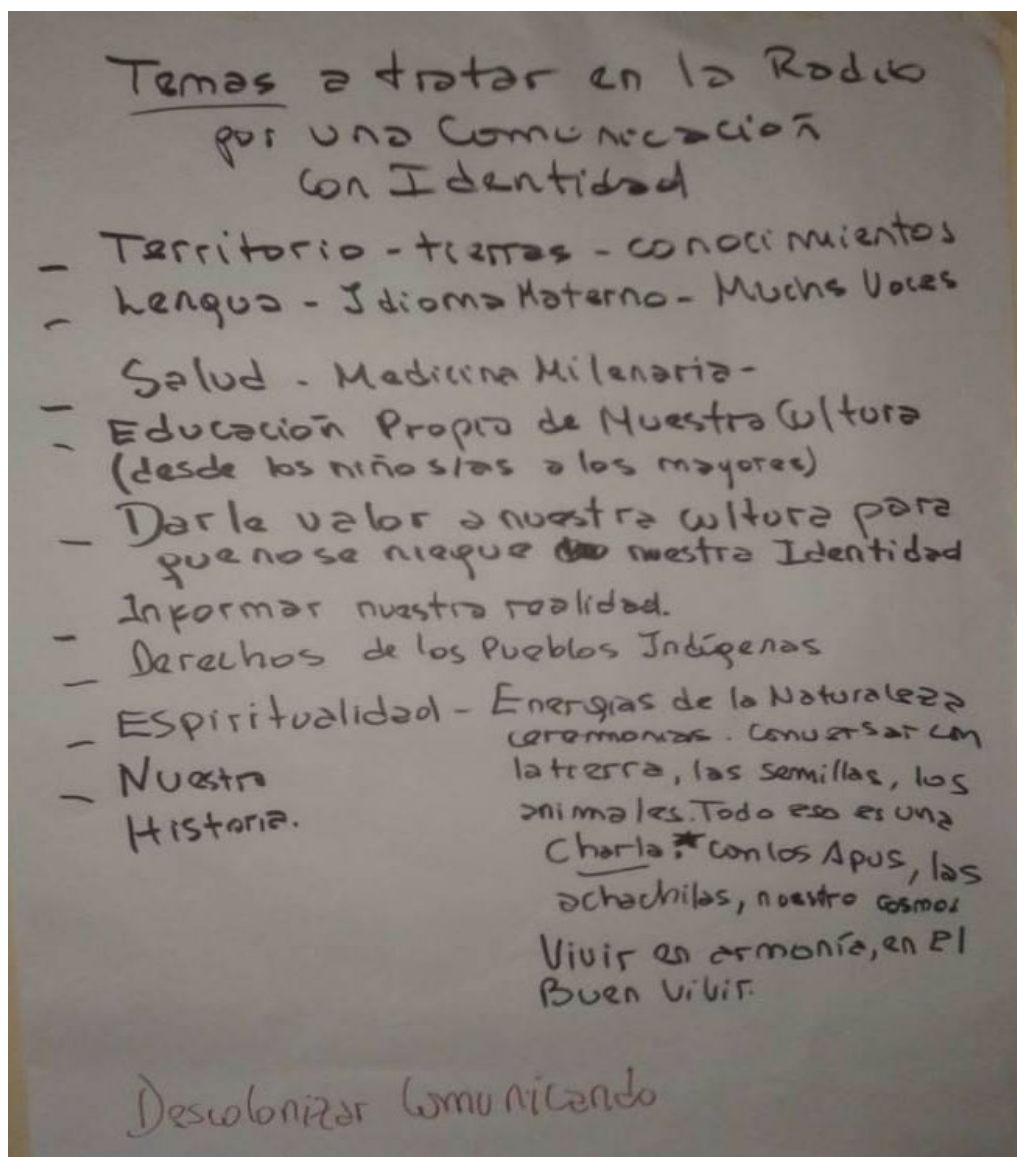 Temas a tratar en la Radio
por una Comunicación
con Identidad
- Territorio - tierras - conocimientos
- Lengua - Idioma Materno - Muchs Voces
- Salud - Medicina Milenaria -
- Educación Propia de Nuestra Cultura
(desde los niños/as a los mayores)
- Darle valor a nuestra cultura para
que no se niegue nuestra Identidad
- Informar nuestra realidad.
- Derechos de los Pueblos Indígenas
- Espiritualidad - Energías de la Naturaleza
ceremonias. Conversar con
la tierra, las semillas, los
animales. Todo eso es una
Charla:* con los Apus, las
achachilas, nuestro cosmos
Vivir en armonía, en el
Buen Vivir.
- Nuestra
Historia.
Descolonizar Comunicando